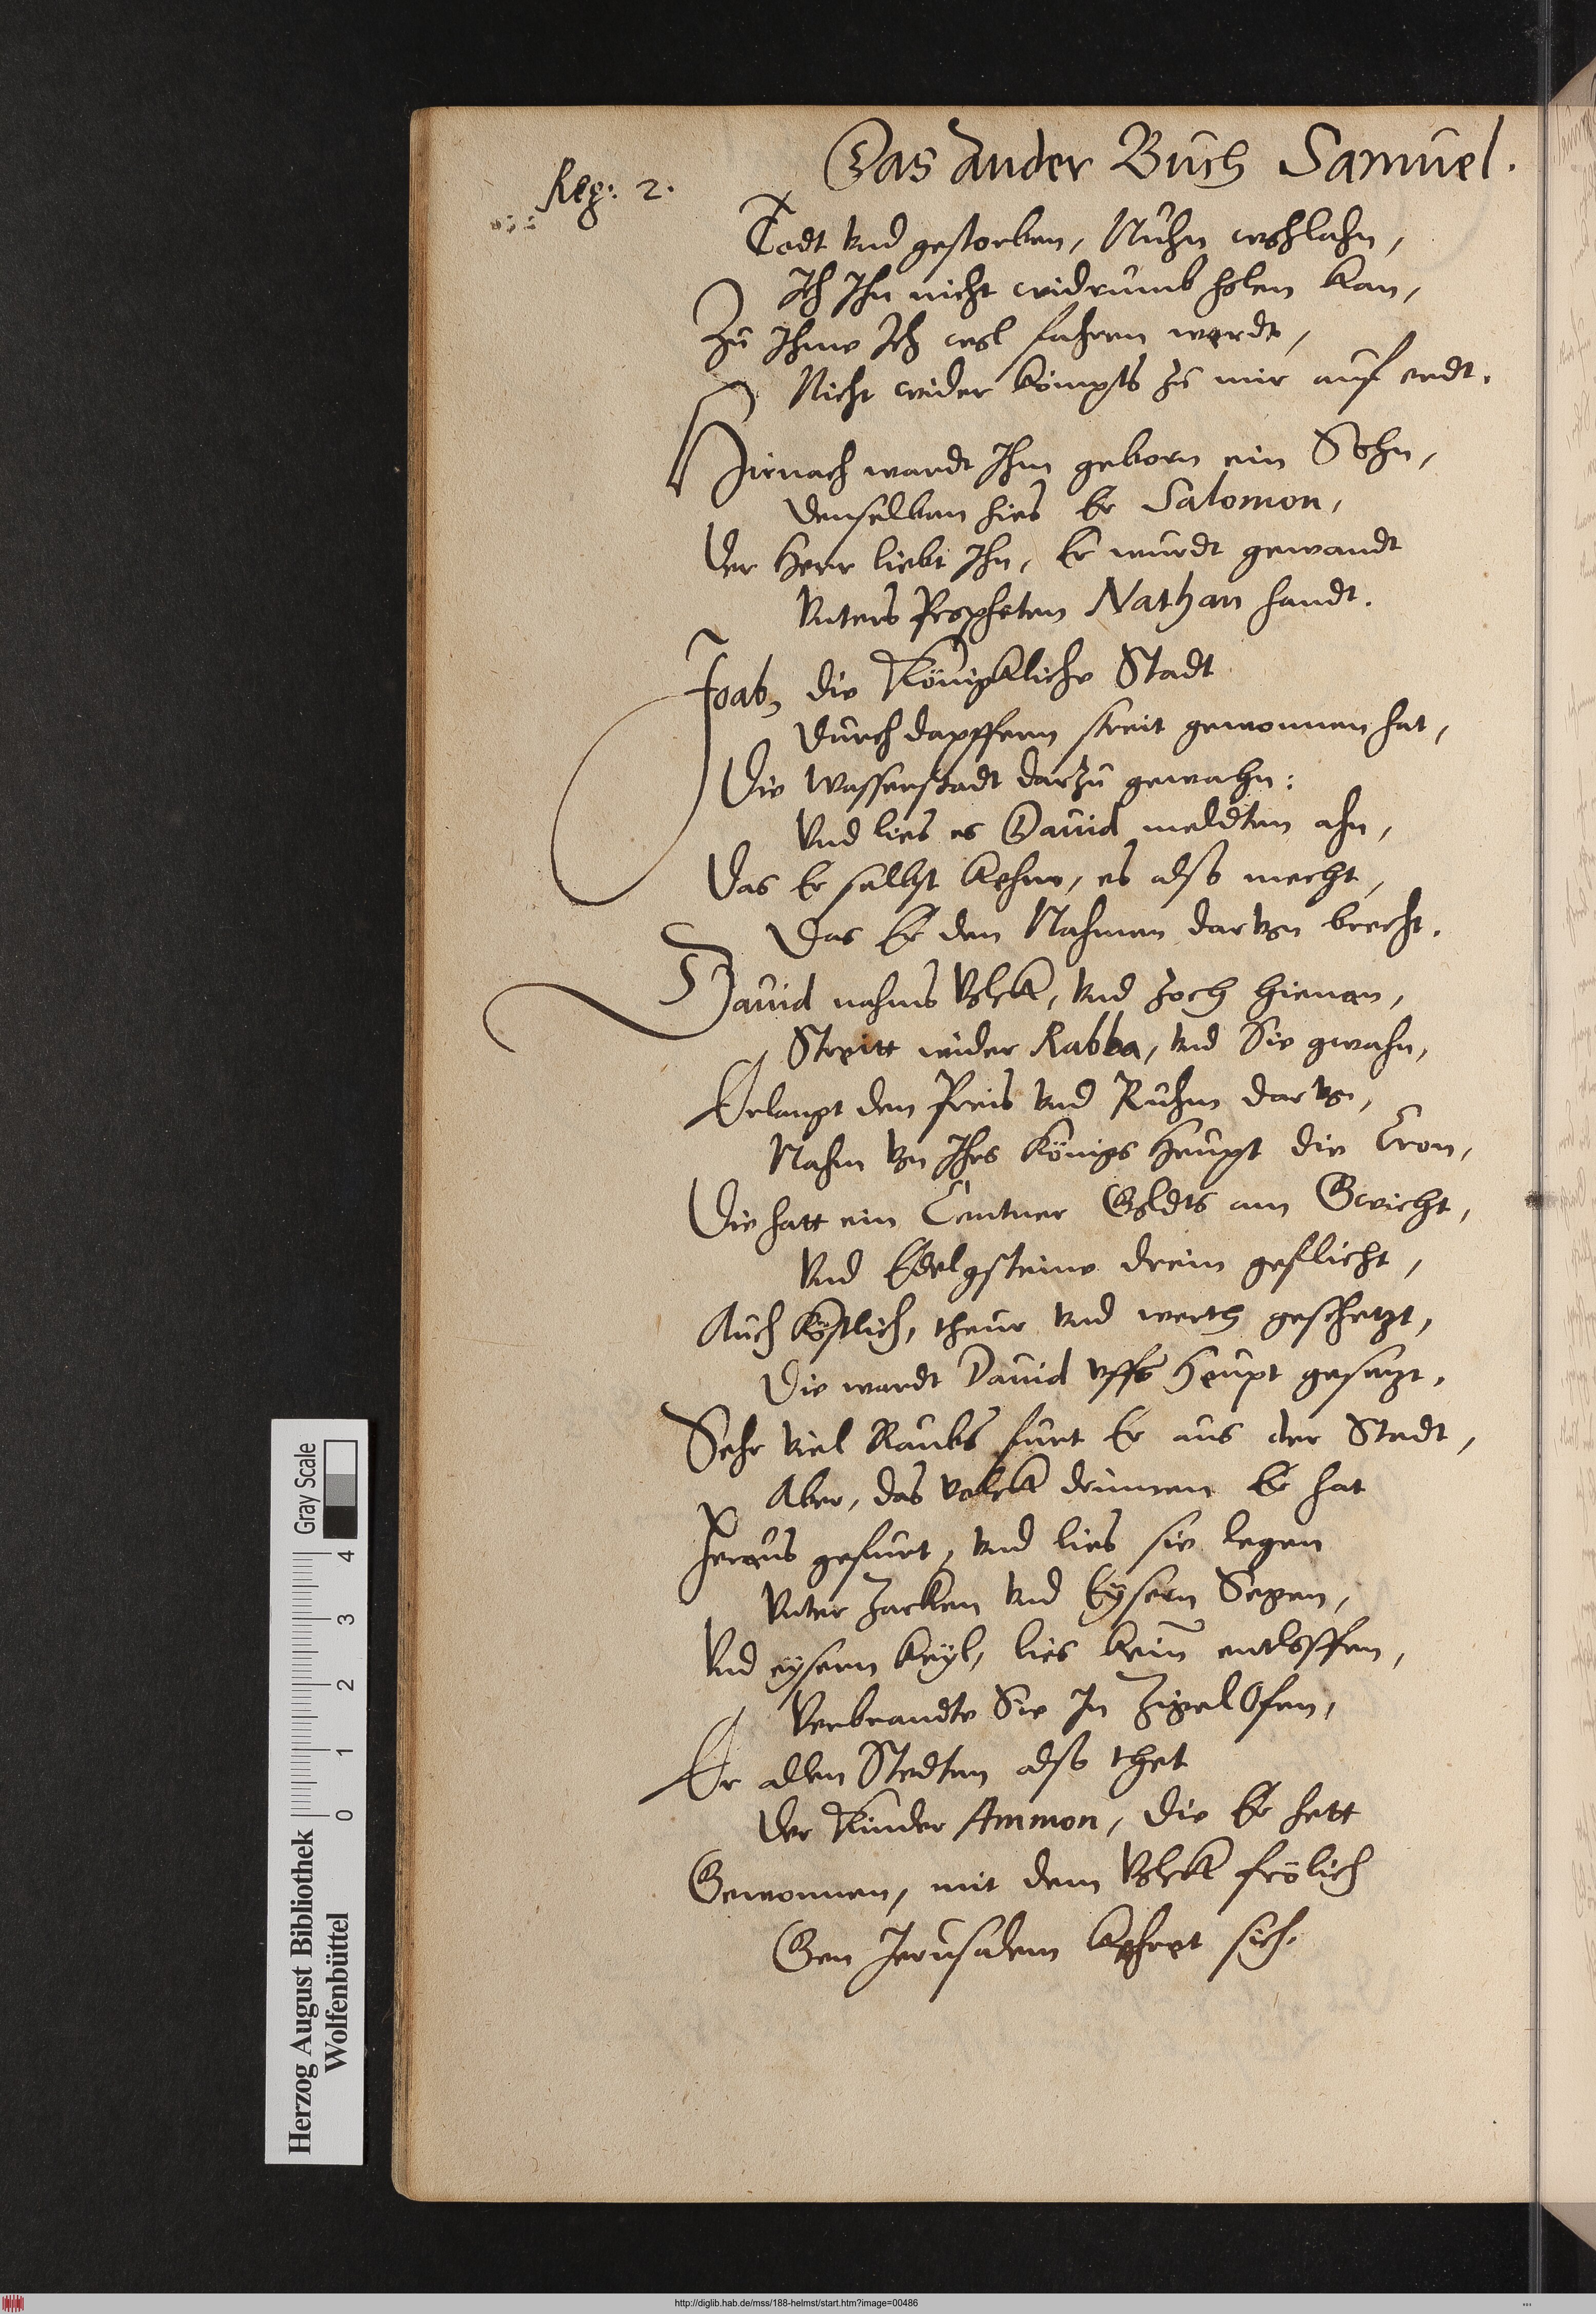 Das Ander Buch Samuel.
Reg: 2.
Todt vnd gestorben, Nuhn wohlahn,
Ich Ihn nicht widrumb holen kan,
Zu Ihme Ich wol fahren werdt,
Nicht wider kompts zu mir auf erdt.
Hirnach wardt Ihm geborn ein Sohn,
denselben hies Er Salomon,
Der Herr liebt Ihn, Er wurdt gewandt
Vnters Propheten Nathan handt.
Joab, die Königkliche Stadt
Durch dapffern streit gewonnen hat,
Die Wasserstadt darzu gewahn:
Vnd lies es Dauid meldten ahn,
Das Er selbst kehme, es also mecht,
Das Er den Nahmen daruon brecht.
Dauid nahms Volck, vnd zoch hienan,
Streitt wider Rabba, vnd Sie gwahn,
Erlangt den Preis vnd Ruhm daruo,
Nahm von Ihrs Königs Heupt die Cron,
Die hatt ein Centner Goldts am Gwicht,
Vnd Edelgsteine drein geflicht,
Auch köstlich, theur vnd werth geschetzt,
Die wardt Dauid vffs Heupt gesetzt.
Sehr viel Raubs furt Er aus der Stadt,
Aber, das volck drinnen Er hat
Heraus gefurt, vnd lies sie legen
Vnter Zacken vnd Eysern Segen,
Vnd eysern keyl, lies kein entloffen,
Verbrandte Sie In Zigel Ofen,
Er allen Stedten also thet
Der Kinder Ammon, die Er hett
Gewonnen, mit dem Volck frölich
Gen Jerusalem kehret sich.
Herzog August Bibliothek
Wolfenbüttel
0 1 2 3 4
Gray Scale
http://diglib.hab.de/mss/188-helmst/start.htm?image=00486